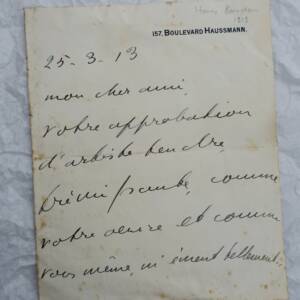 Henry
1913
157, BOULEVARD HAUSSMANN.
25-3-13
mon cher ami,
votre approbation
d'artiste tendre,
frémissante, comme
votre œuvre et comme
vous même, m'émeut tellement